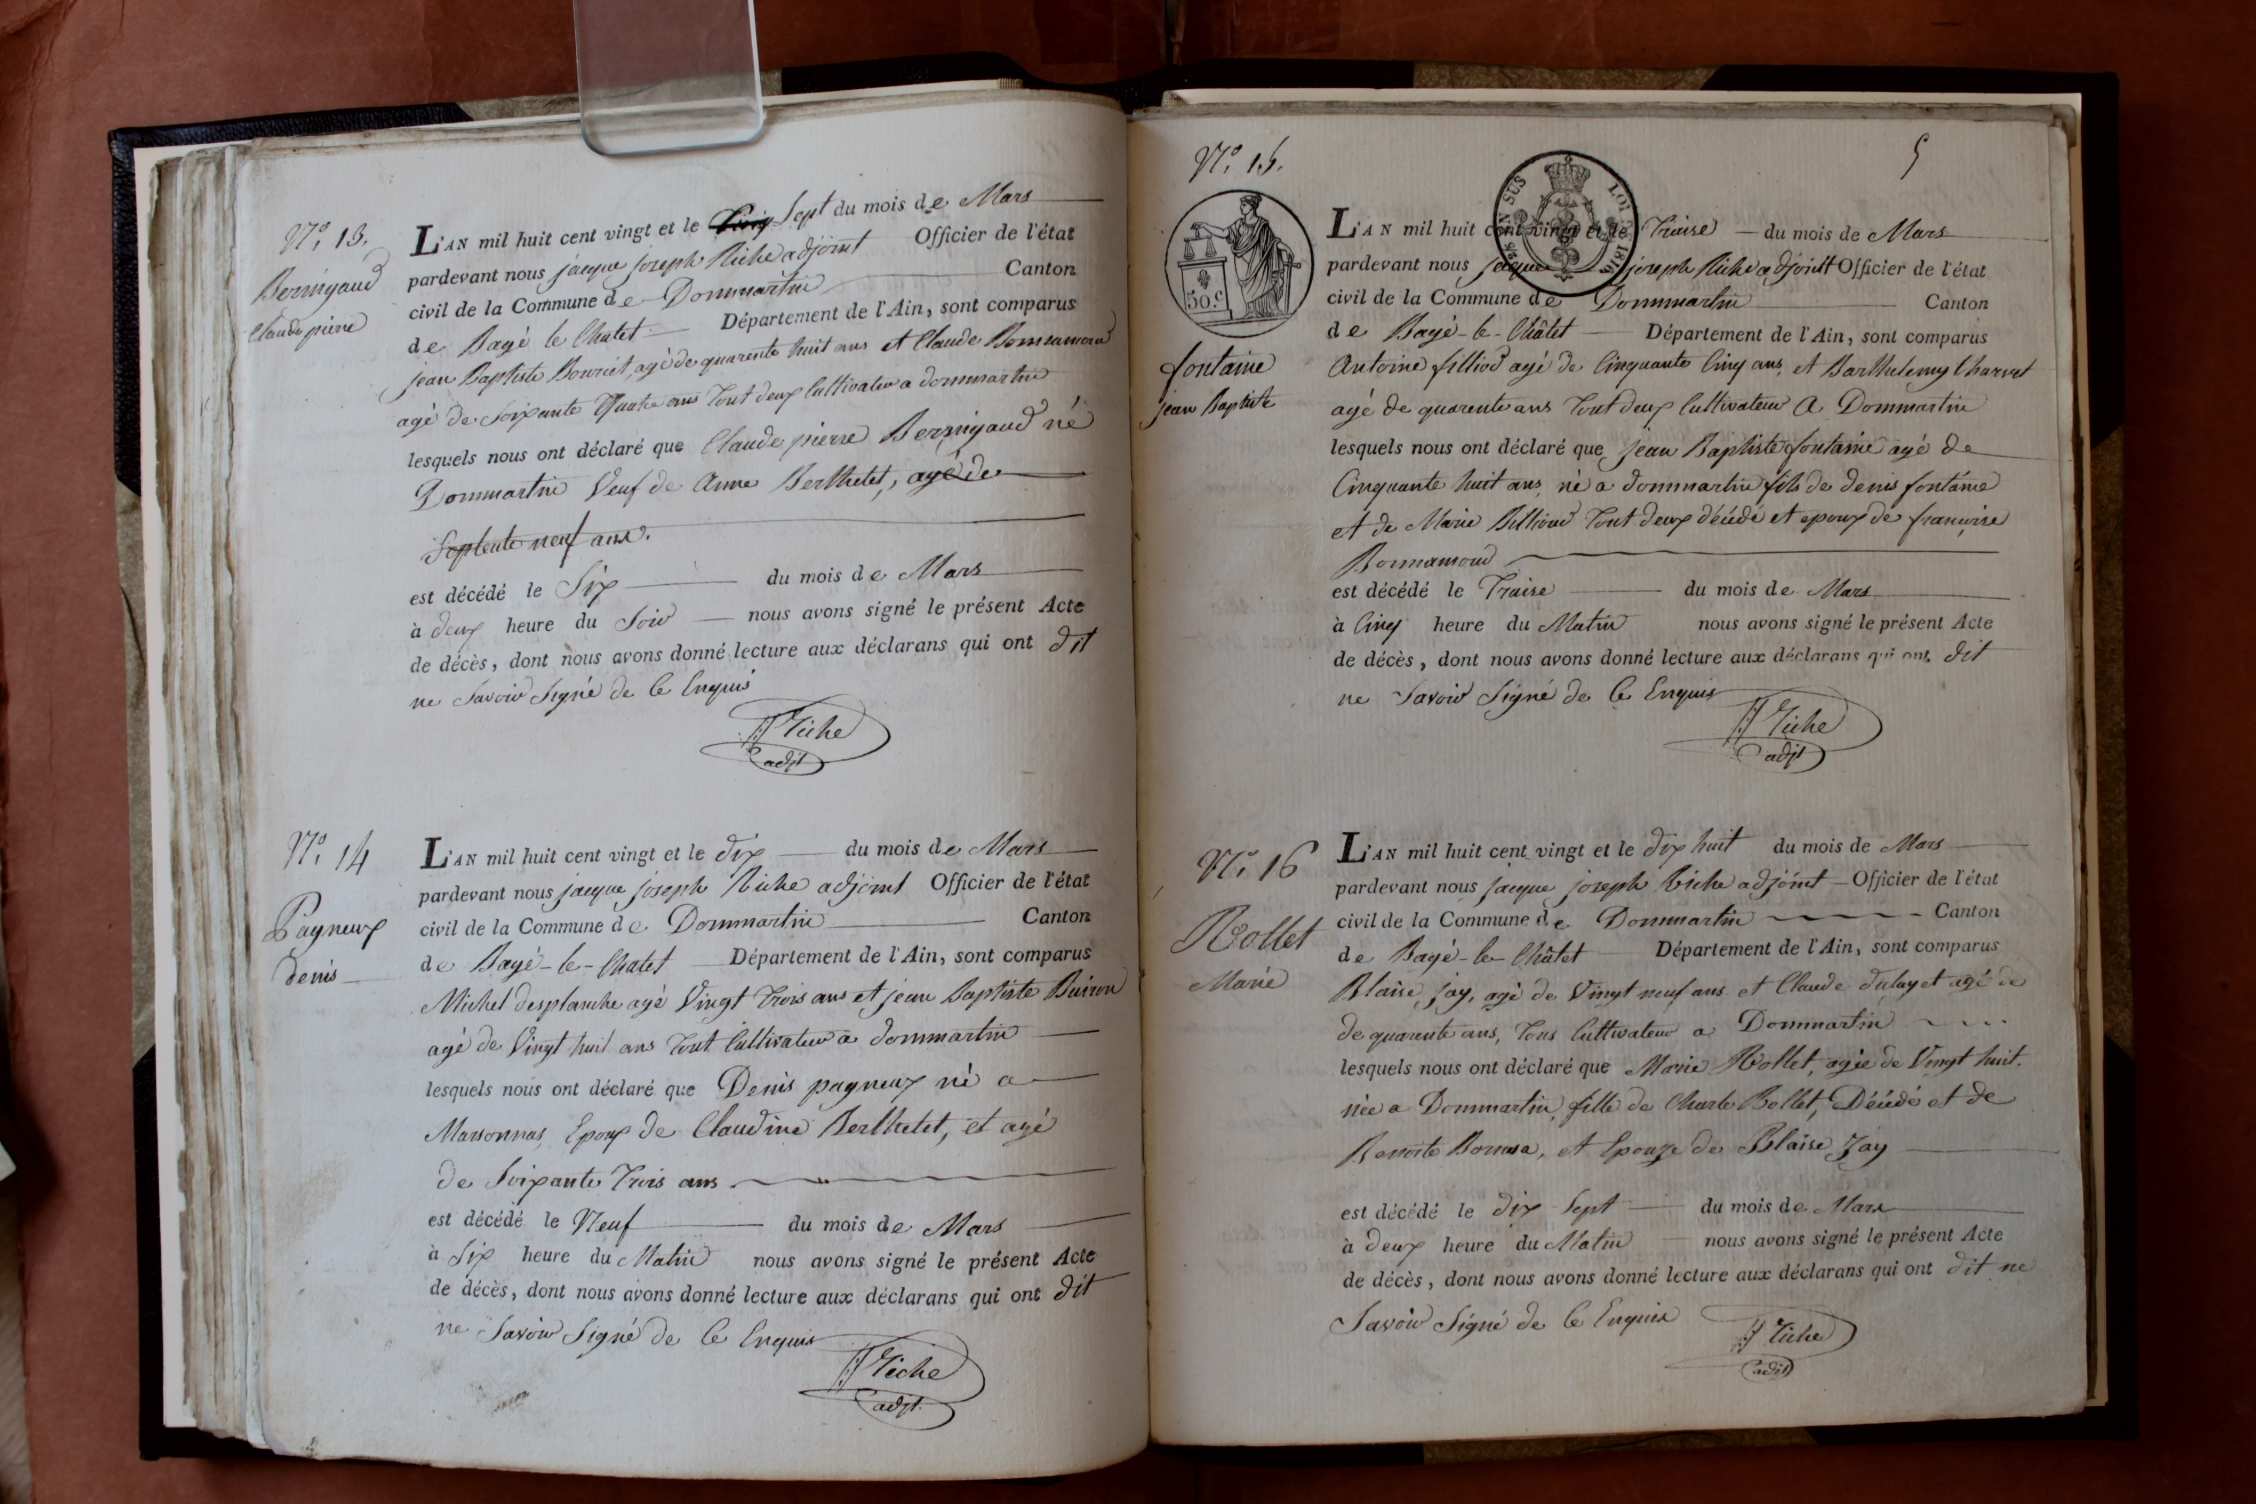 N.º 13.
Bernigaud
Claude pierre
L'AN mil huit cent vingt et le Sept du mois de Mars
pardevant nous jacque joseph Riche adjoint Officier de l'état
civil de la Commune de Dommartin Canton
de Bagé le Chatel Département de l'Ain, sont comparus
jean Baptiste Bourcet, agé de quarente huit ans et Claude Bonnamour
agé de Soixante Quatre ans Tout deux Cultivateur a dommartin
lesquels nous ont déclaré que Claude pierre né
Dommartin Veuf de Anne Berthelet, agé de
Septente neuf ans.
est décédé le Six du mois de Mars
à deux heure du Soir nous avons signé le présent Acte
de décès, dont nous avons donné lecture aux déclarans qui ont dit
ne Savoir Signé de Ce Enquis
JJ Riche
adjt
N.º 14
Pagneux
denis
L'AN mil huit cent vingt et le dix du mois de Mars
pardevant nous jacque joseph Riche adjoint Officier de l'état
civil de la Commune de Dommartin Canton
de Bagé-le-Chatel Département de l'Ain, sont comparus
Michel desplanche agé Vingt Trois ans et jean Baptiste Buiron
agé de Vingt huit ans Tout Cultivateur a dommartin
lesquels nous ont déclaré que Denis pagneux né a
Marsonnas, Epoux de Claudine Berthelet, et agé
de Soixante Trois ans
est décédé le Neuf du mois de Mars
à Six heure du Matin nous avons signé le présent Acte
de décès, dont nous avons donné lecture aux déclarans qui ont dit
ne Savoir Signé de Ce Enquis
JJ Riche
adjt.
N.º 15.
5
50.c
EN SUS
LOI 1816
fontaine
jean Baptiste
L'AN mil huit cent vingt et le Traise du mois de Mars
pardevant nous jacque joseph Riche adjoint Officier de l'état
civil de la Commune de Dommartin Canton
de Bagé-le-Châtel Département de l'Ain, sont comparus
Antoine filliod agé de Cinquante Cinq ans, et Barthelemy Charvet
agé de quarente ans Tout deux Cultivateur a Dommartin
lesquels nous ont déclaré que jean Baptiste fontaine agé de
Cinquante huit ans, né a dommartin fils de denis fontaine
et de Marie Billioud Tout deux décédé et epoux de françoise
Bonnamour
est décédé le Traise du mois de Mars
à Cinq heure du Matin nous avons signé le présent Acte
de décès, dont nous avons donné lecture aux déclarans qui ont dit
ne Savoir Signé de Ce Enquis
JJ Riche
adjt
N.º 16
Rollet
Marie
L'AN mil huit cent vingt et le dix huit du mois de Mars
pardevant nous jacque joseph Riche adjoint Officier de l'état
civil de la Commune de Dommartin Canton
de Bagé-le-Châtel Département de l'Ain, sont comparus
Blaise Jay, agé de Vingt neuf ans et Claude agé de
de quarente ans, Tous Cultivateur a Dommartin
lesquels nous ont déclaré que Marie Rollet, agée de Vingt huit.
née a Dommartin, fille de Charle Rollet, Décédé et de
Benoite et Epouze de Blaise Jay
est décédé le dix Sept du mois de Mars
à deux heure du Matin nous avons signé le présent Acte
de décès, dont nous avons donné lecture aux déclarans qui ont dit ne
Savoir Signé de Ce Enquis
JJ Riche
adjt